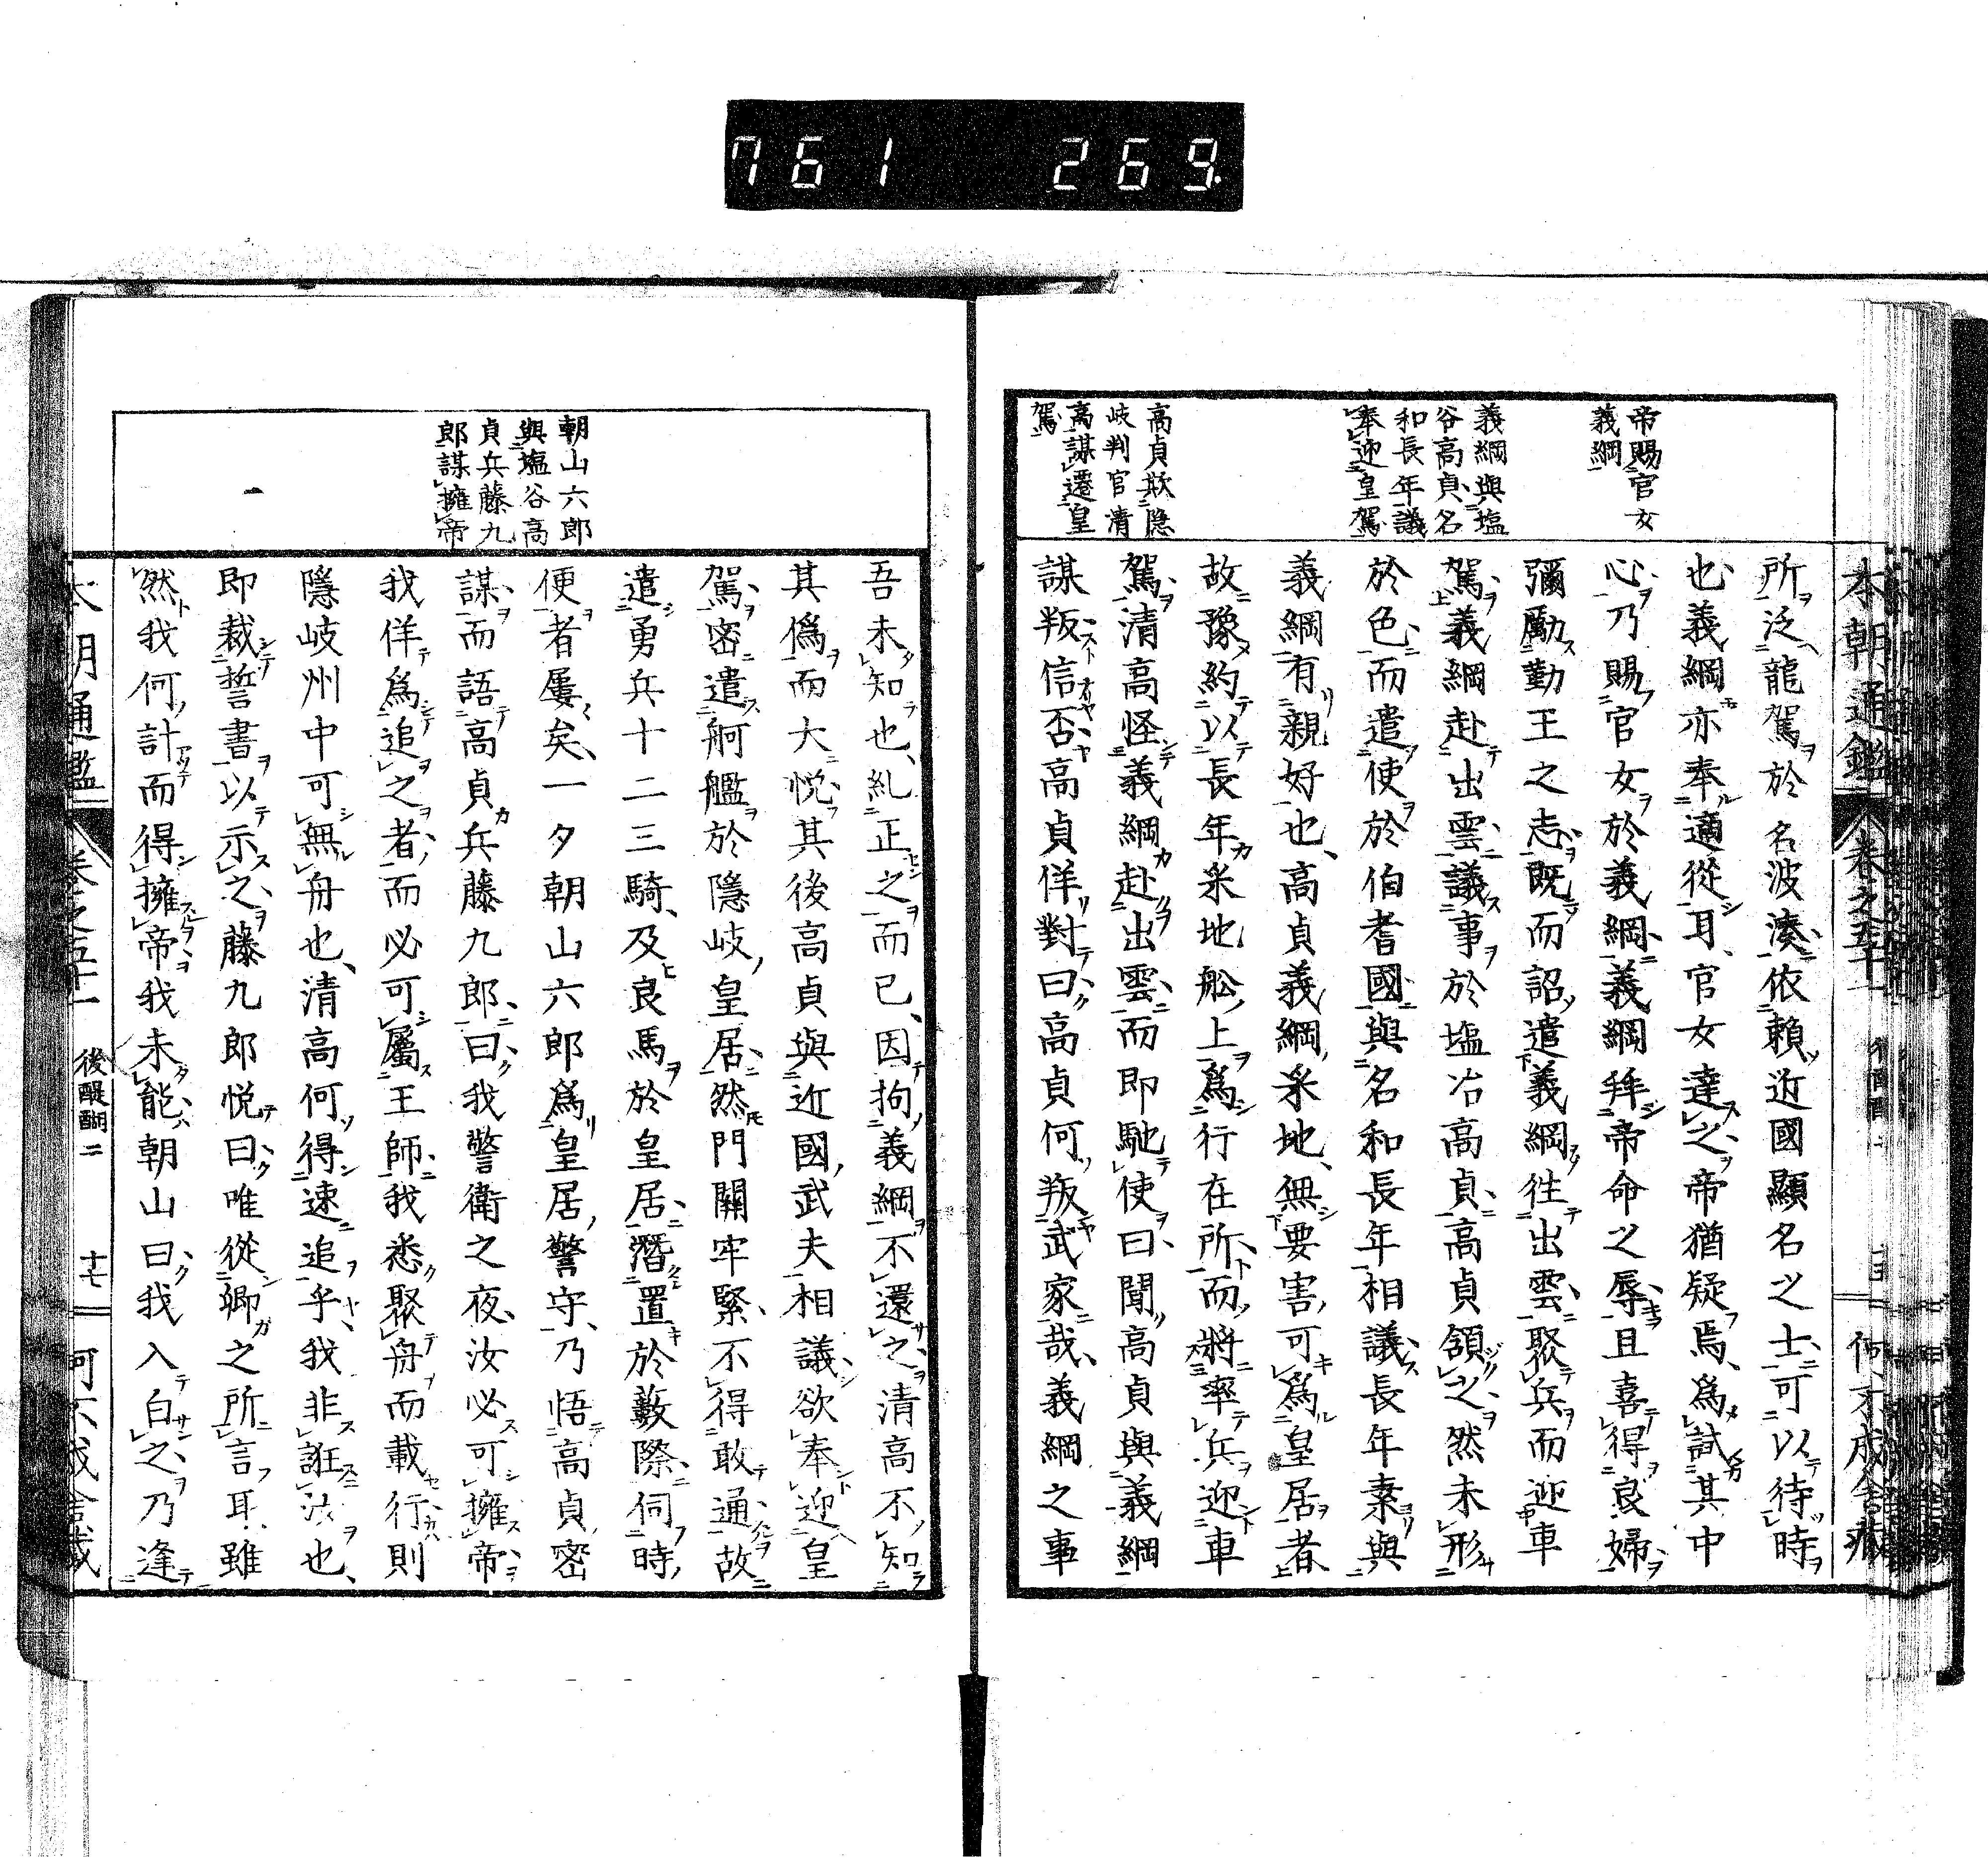 761 269
本朝通鑑 卷之五十一
帝賜官女
義綱
義綱與塩
谷高貞名
和長年議
奉迎皇駕
高貞欺隐
岐判官清
高謀遷皇
駕
所泛龍駕於名波湊依賴近國顯名之士可以待時
也義綱亦奉適從耳官女達之帝猶疑焉爲試其中
心乃賜官女於義綱義綱拜帝命之辱且喜得良婦
彌勵勤王之志既而詔遣義綱徃出雲聚兵而迎車
駕義綱赴出雲議事於塩冶高貞高貞領之然未形
於色而遣使於伯耆國與名和長年相議長年素與
義綱有親好也高貞義綱采地無要害可爲皇居者
故豫約以長年采地舩上爲行在所而將率兵迎車
駕清高怪義綱赴出雲而即馳使曰聞高貞與義綱
謀叛信否高貞佯對曰高貞何叛武家哉義綱之事
朝山六郎
與塩谷高
貞兵藤九
郎謀擁帝
吾未知也糺正之而已因拘義綱不還之清高不知
其僞而大悦其後高貞與近國武夫相議欲奉迎皇
駕密遣舸艦於隱岐皇居然門關牢緊不得敢通故
遣勇兵十二三騎及良馬於皇居潛置於藪際伺時
便者屢矣一夕朝山六郎爲皇居警守乃悟高貞密
謀而語高貞兵藤九郎曰我警衛之夜汝必可擁帝
我佯爲追之者而必可屬王師我悉聚舟而載行則
隱岐州中可無舟也清高何得速追乎我非誑汝也
即裁誓書以示之藤九郎悦曰唯從卿之所言耳雖
然我何計而得擁帝我未能朝山曰我入白之乃逢
本朝通鑑 卷之五十一 後醍醐二 十七